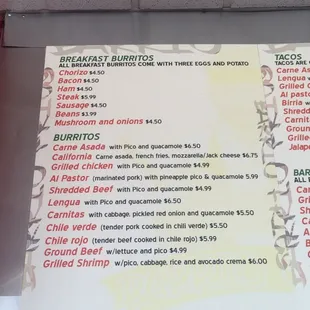 BREAKFAST BURRITOS
ALL BREAKFAST BURRITOS COME WITH THREE EGGS AND POTATO
Chorizo $4.50
Bacon $4.50
Ham $4.50
Steak $5.99
Sausage $4.50
Beans $3.99
Mushroom and onions $4.50
BURRITOS
Carne Asada with Pico and guacamole $6.50
California Carne asada, french fries, mozzarella/Jack cheese $6.75
Grilled chicken with Pico and guacamole $4.99
Al Pastor (marinated pork) with pineapple pico & guacamole 5.99
Shredded Beef with Pico and guacamole $4.99
Lengua with Pico and guacamole $6.50
Carnitas with cabbage, pickled red onion and guacamole $5.50
Chile verde (tender pork cooked in chili verde) $5.50
Chile rojo (tender beef cooked in chile rojo) $5.99
Ground Beef w/lettuce and pico $4.99
Grilled Shrimp w/pico, cabbage, rice and avocado crema $6.00
TACOS
TACOS ARE
Carne As
Lengua
Grilled
Al pasto
Birria
Shredd
Carnit
Ground
Grilled
Jalap
BAR
ALL
Car
Gri
Shr
Car
Gro
Gri